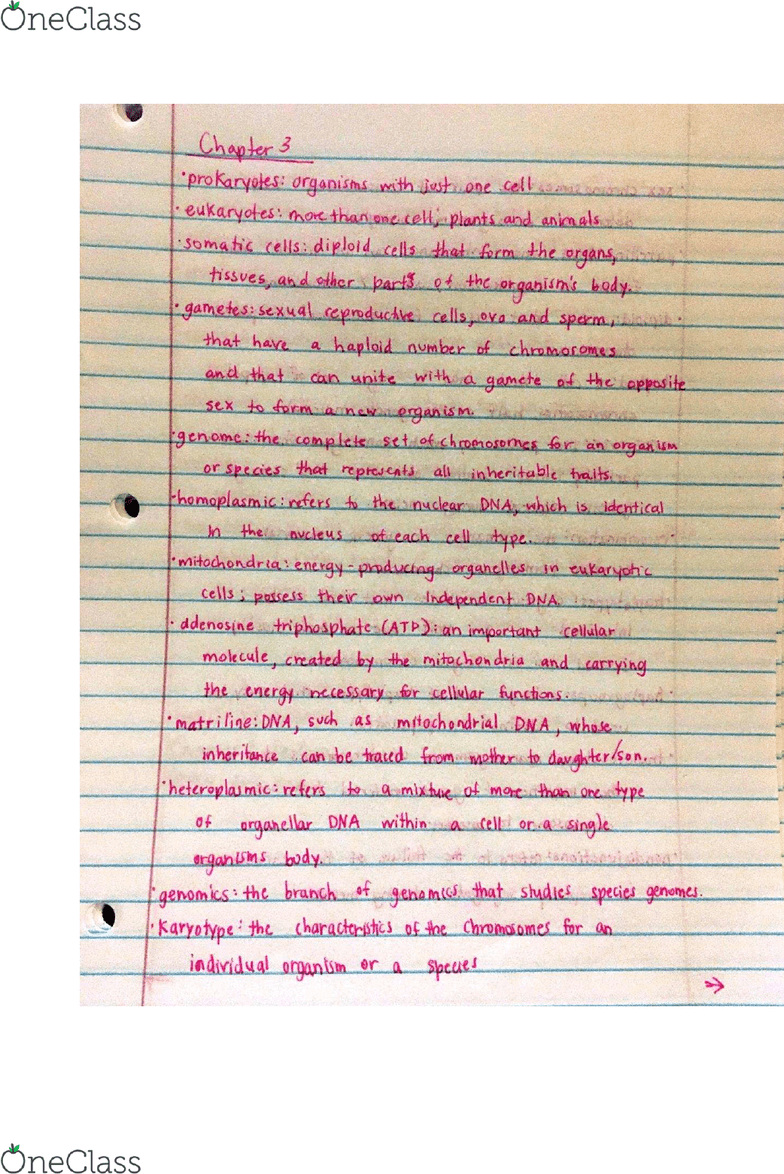 OneClass
Chapter 3
·prokaryotes: organisms with just one cell
·eukaryotes: more than one cell; plants and animals
·somatic cells: diploid cells that form the organs,
tissues, and other parts of the organism's body.
·gametes: sexual reproductive cells, ova and sperm,
that have a haploid number of chromosomes
and that can unite with a gamete of the opposite
sex to form a new organism.
·genome: the complete set of chromosomes for an organism
or species that represents all inheritable traits.
·homoplasmic: refers to the nuclear DNA, which is identical
in the nucleus of each cell type.
·mitochondria: energy-producing organelles in eukaryotic
cells; possess their own independent DNA.
·adenosine triphosphate (ATP): an important cellular
molecule, created by the mitochondria and carrying
the energy necessary for cellular functions.
·matriline: DNA, such as mitochondrial DNA, whose
inheritance can be traced from mother to daughter/son.
·heteroplasmic: refers to a mixture of more than one type
of organellar DNA within a cell or a single
organisms body.
·genomics: the branch of genomics that studies species genomes.
·Karyotype: the characteristics of the chromosomes for an
individual organism or a species
→
OneClass